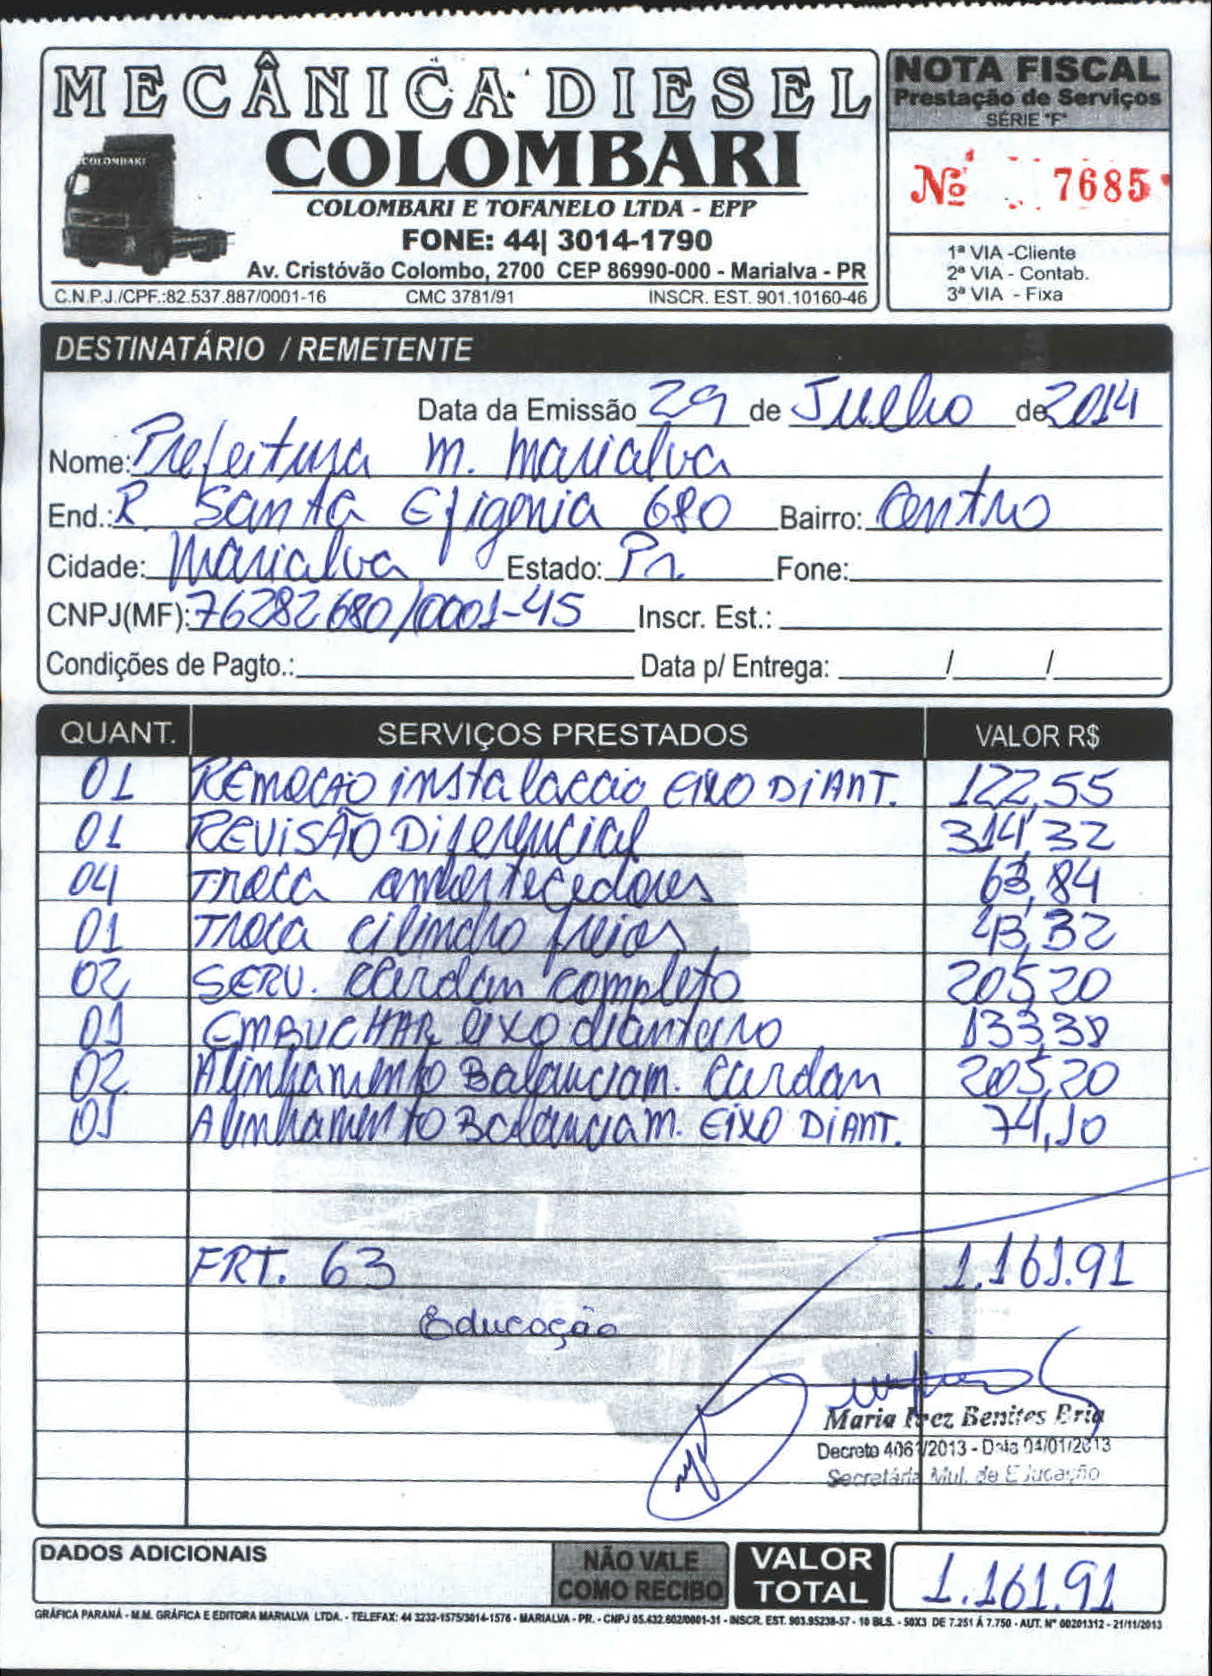 MECÂNICA DIESEL
COLOMBARI
COLOMBARI
COLOMBARI E TOFANELO LTDA - EPP
FONE: 44| 3014-1790
Av. Cristóvão Colombo, 2700 CEP 86990-000 - Marialva - PR
C.N.P.J./CPF.:82.537.887/0001-16 CMC 3781/91 INSCR. EST. 901.10160-46
NOTA FISCAL
Prestação de Serviços
SÉRIE "F"
Nº 7685
1ª VIA -Cliente
2ª VIA - Contab.
3ª VIA - Fixa
DESTINATÁRIO / REMETENTE
Data da Emissão 29 de Julho de 2014
Nome: Prefeitura m. marialva
End.: R. Santa Efigenia 680 Bairro: Centro
Cidade: Marialva Estado: Pr. Fone:
CNPJ(MF): 76282680/0001-45 Inscr. Est.:
Condições de Pagto.: Data p/ Entrega: / /
QUANT. SERVIÇOS PRESTADOS VALOR R$
01 REMOÇÃO instalaccão EIXO DIANT. 122,55
01 REVISÃO Diferencial 314,32
04 Troca amortecedores 63,84
01 Troca cilindro freios 43,32
02 SERV. cardan completo 205,20
01 EMBUCHAR eixo dianteiro 133,38
02 Alinhamento Balanciam. cardan 205,20
01 Alinhamento Balanciam. EIXO DIANT. 74,10
FRT. 63 1.161.91
Educação
Maria Inez Benites Bria
Decreto 4061/2013 - Data 04/01/2013
Secretária Mul. de Educação
DADOS ADICIONAIS
NÃO VALE
COMO RECIBO
VALOR
TOTAL
1.161.91
GRÁFICA PARANÁ - M.M. GRÁFICA E EDITORA MARIALVA LTDA. - TELEFAX: 44 3232-1575/3014-1576 - MARIALVA - PR. - CNPJ 05.432.602/0001-31 - INSCR. EST. 903.95238-57 - 10 BLS. - 50X3 DE 7.251 Á 7.750 - AUT. Nº 00201312 - 21/11/2013